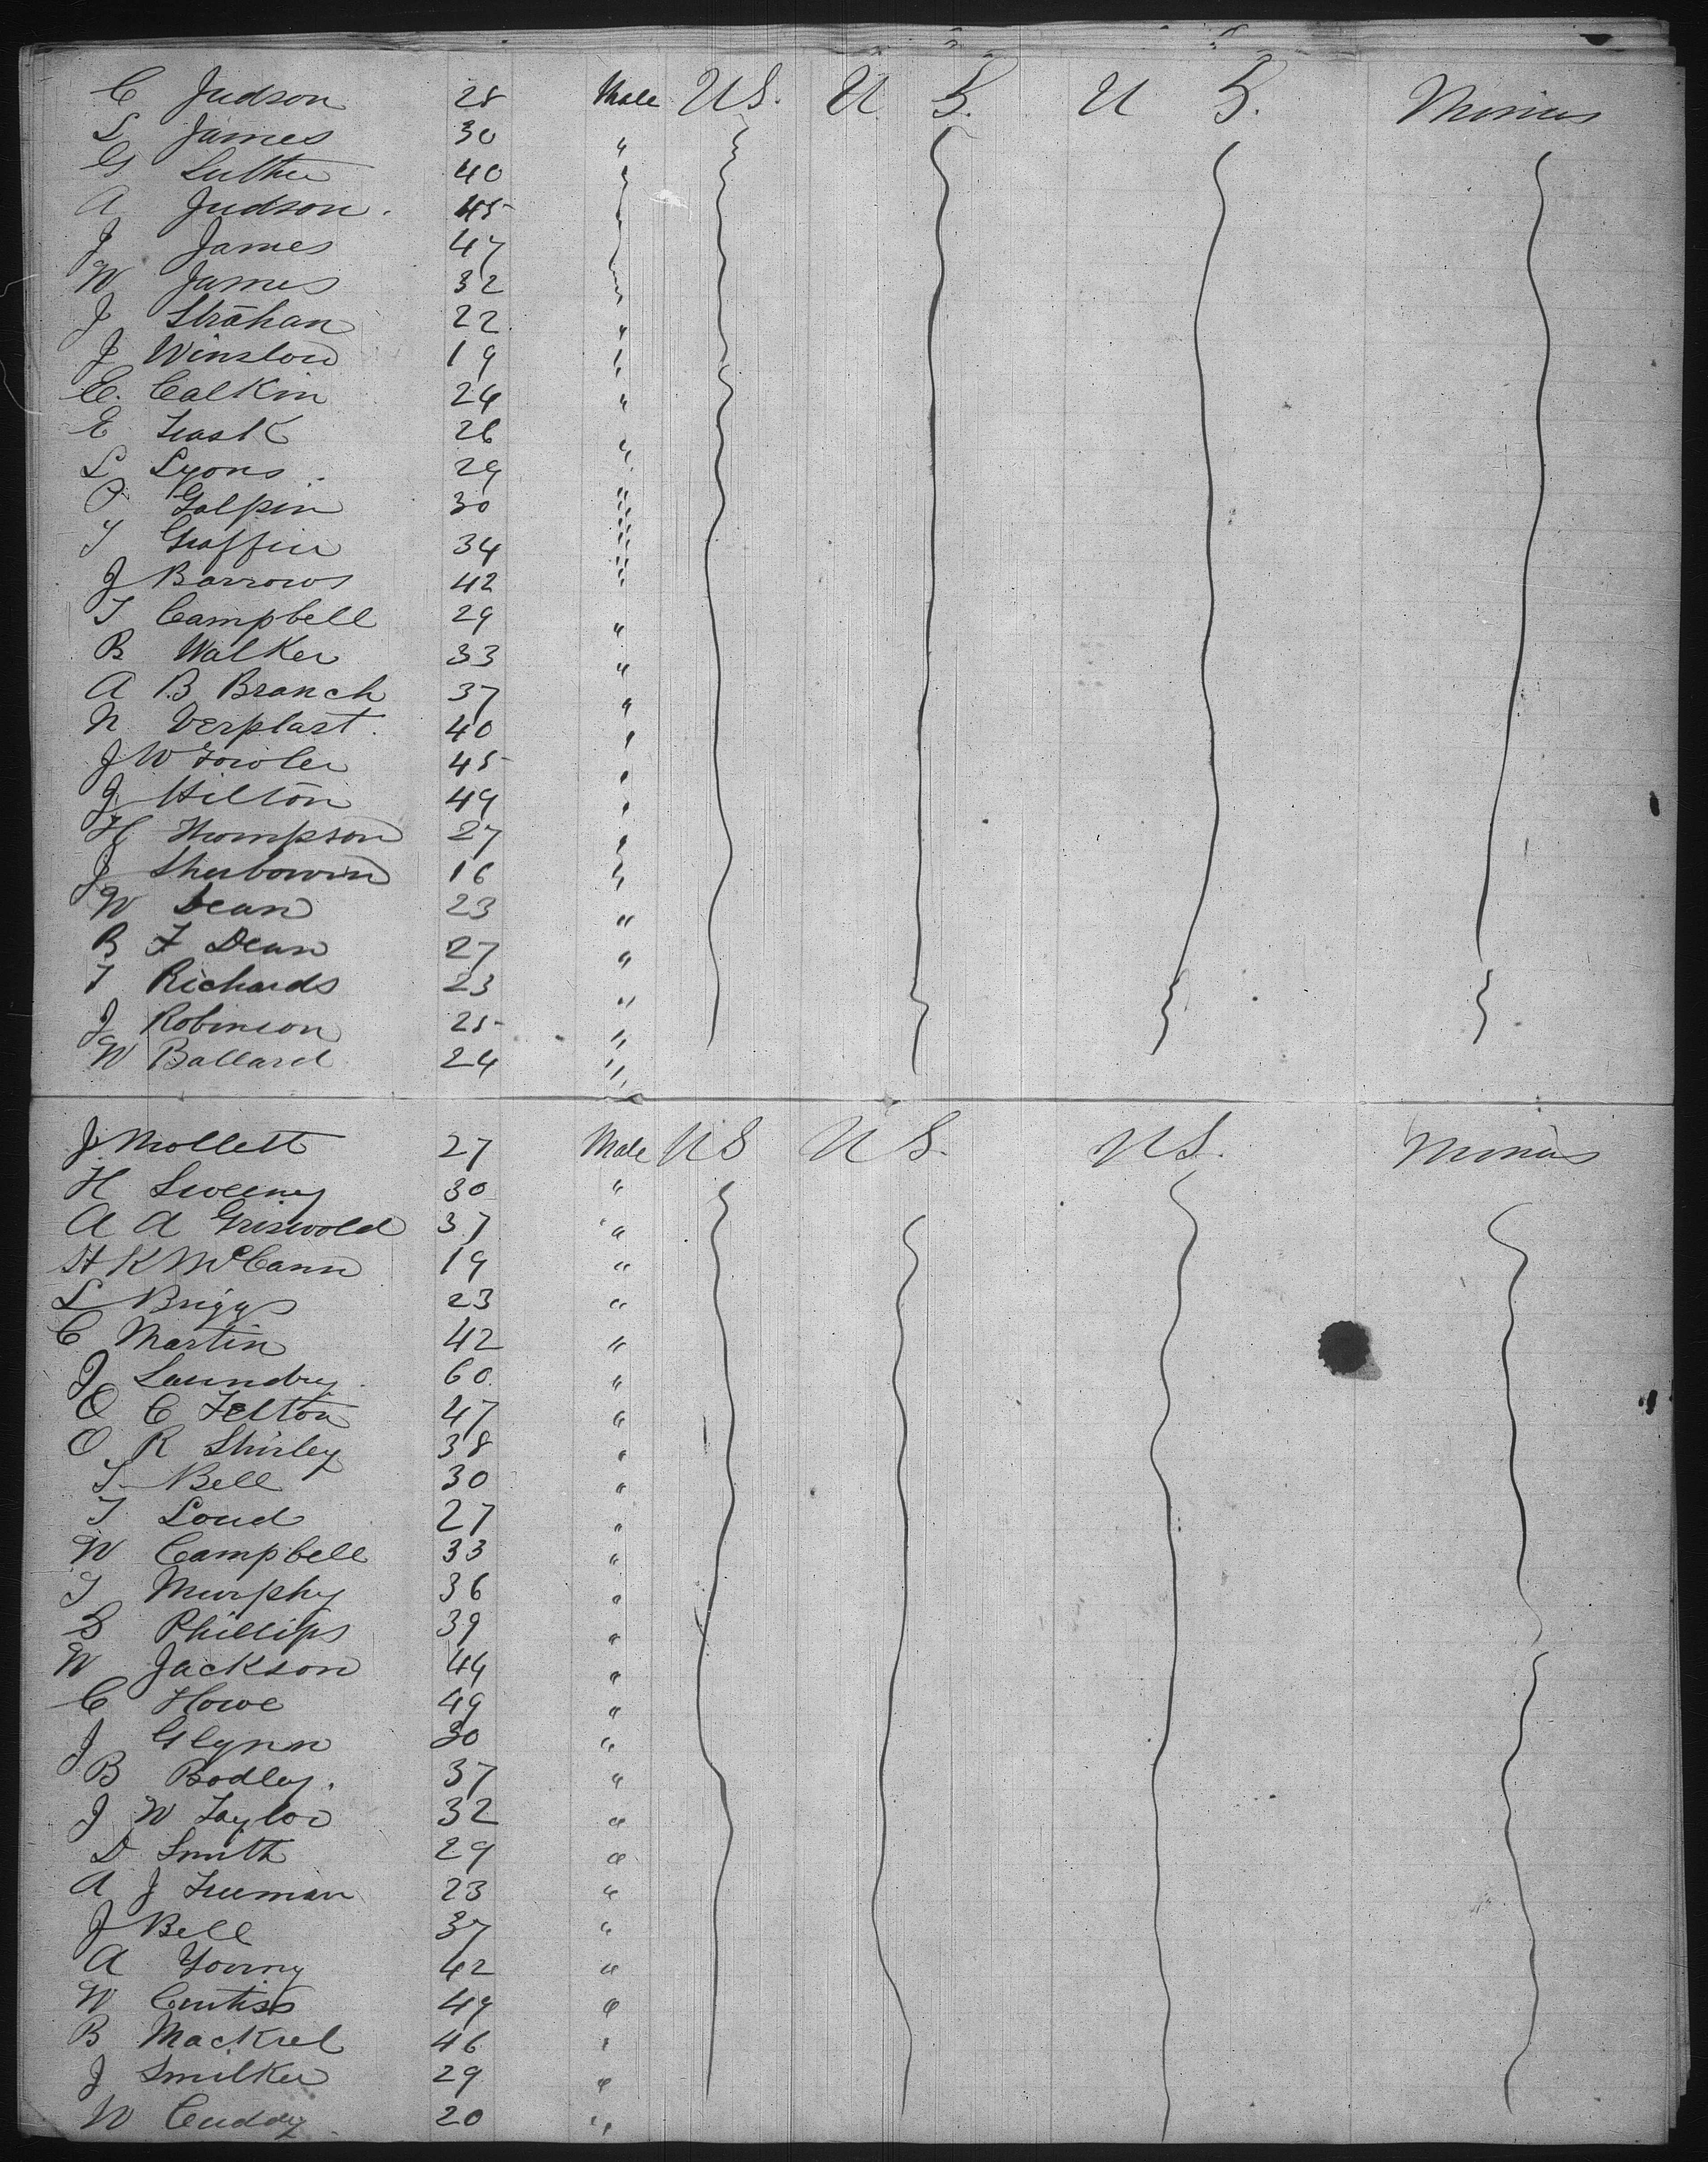 C Judson 28 Male US. U S. U S. Miners
L James 30 "
G Luther 40
A Judson. 45
J James 47
W James 32
J Strahan 22 "
J Winslow 19 "
C. Calkin 24 "
E Trask 26 "
L Lyons 29 "
P Galpin 30 "
T Graffin 34 "
J Barrows 42 "
T Campbell 29 "
B Walker 33 "
A B Branch 37 "
N Verplast. 40 "
J W Fowler 45 "
J Hilton 49 "
H Thompson 27 "
J 16 "
W Dean 23 "
B F Dean 27 "
T Richards 23 "
J Robinson 25 "
W Ballard 24 "
J Mollett 27 Male US U S. US. Miners
H Sweeney 30 "
A A Griswold 37 "
H K McCann 19 "
L Briggs 23 "
C Martin 42 "
J Laundry 60 "
O C Felton 47 "
O R Shirley 38 "
T Bell 30 "
T Loud 27 "
W Campbell 33 "
T Murphy 36 "
S Phillips 39 "
W Jackson 44 "
C Howe 49 "
J Glynn 30 "
B Bodley. 37 "
J W Taylor 32 "
D Smith 29 "
A J Freeman 23 "
J Bell 37 "
A Young 42 "
W Curtiss 49 "
B Mackrel 46 "
J Smilker 29 "
W Cuddy 20 "